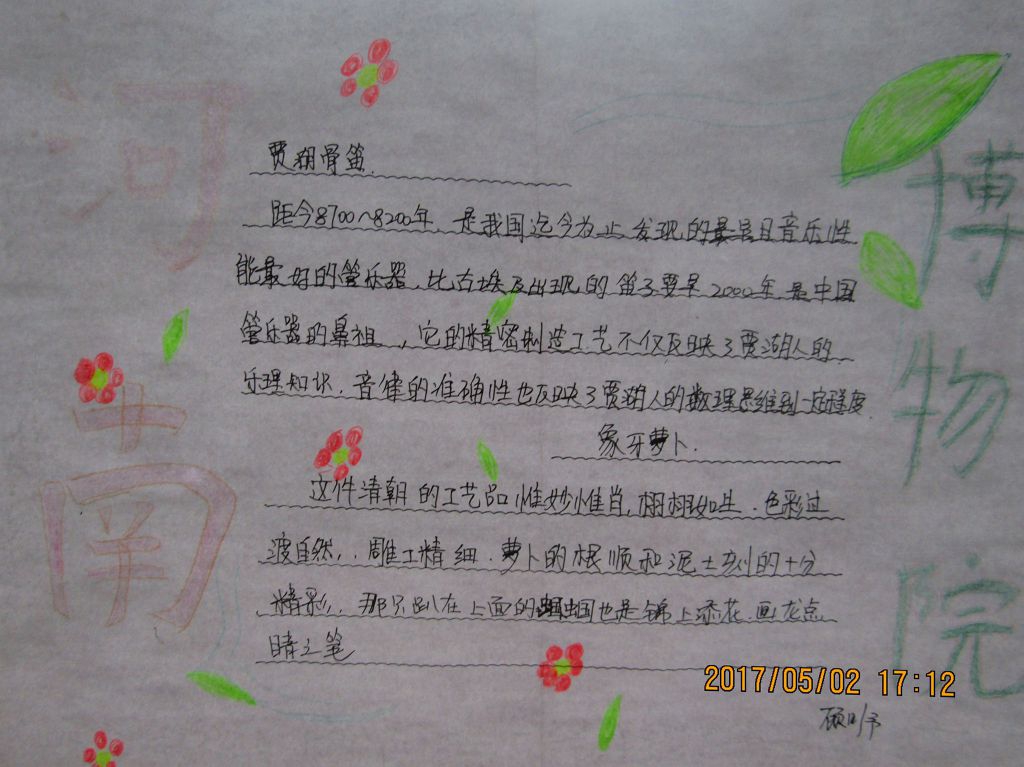 河南
博物院
贾湖骨笛.
距今8700~8200年,是我国迄今为止发现的最早且音乐性
能最好的管乐器,比古埃及出现的笛子要早2000年,是中国
管乐器的鼻祖,它的精密制造工艺不仅反映了贾湖人的
乐理知识.音律的准确性也反映了贾湖人的数理思维到一定程度.
象牙萝卜.
这件清朝的工艺品惟妙惟肖,栩栩如生.色彩过
渡自然,.雕工精细.萝卜的根须和泥土刻的十分
精彩,那只趴在上面的蝈蝈也是锦上添花.画龙点
睛之笔
2017/05/02 17:12